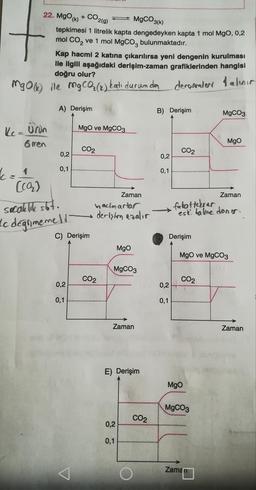 22. MgO(k) + CO2(g) ⇌ MgCO3(k)
tepkimesi 1 litrelik kapta dengedeyken kapta 1 mol MgO, 0,2
mol CO2 ve 1 mol MgCO3 bulunmaktadır.
Kap hacmi 2 katına çıkarılırsa yeni dengenin kurulması
ile ilgili aşağıdaki derişim-zaman grafiklerinden hangisi
doğru olur?
MgO(k) ile MgCO3(k) katı durumda derişimleri 1 alınır
Kc = ürün
Giren
Kc = 1
[CO2]
sıcaklık sbt.
Kc değişmemeli
A) Derişim
MgO ve MgCO3
CO2
0,2
0,1
Zaman
hacim artar
derişim azalır
B) Derişim
MgCO3
MgO
CO2
0,2
0,1
Zaman
eski haline döner.
C) Derişim
MgO
MgCO3
CO2
0,2
0,1
Zaman
Derişim
MgO ve MgCO3
CO2
0,2
0,1
Zaman
E) Derişim
MgO
MgCO3
CO2
0,2
0,1
Zaman